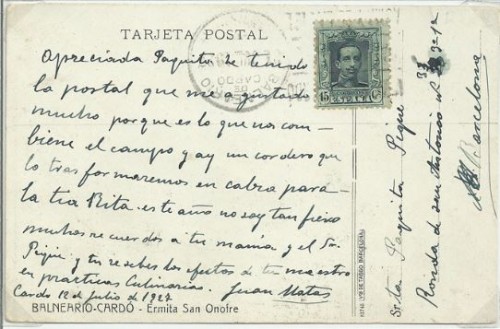 TARJETA POSTAL
Apreciada Paquita he tenido
la postal que me a gustado
mucho porque es lo que nos com-
biene el campo y ay un cordero que
lo tras formaremos en cabra para
la tia Rita. este año no soy tan fiero
muchos recuerdos a tu mamá y el Sr.
Piqué y tu recibes los afectos de tu maestro
en practicas Culinarias. Juan Matas
Cardó 12 de Julio de 1927
BALNEARIO-CARDÓ - Ermita San Onofre
CARDO
15 CTS
Srta Paquita Piqué
Ronda de San Antonio nº 3-1ª
Barcelona